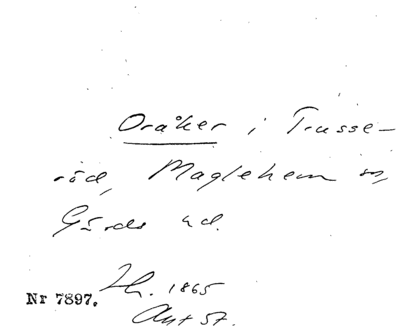 Oråker i Trusse-
röd, Maglehem sn,
Gärds hd.
Nr 7897. Lh. 1865
Ant 57.